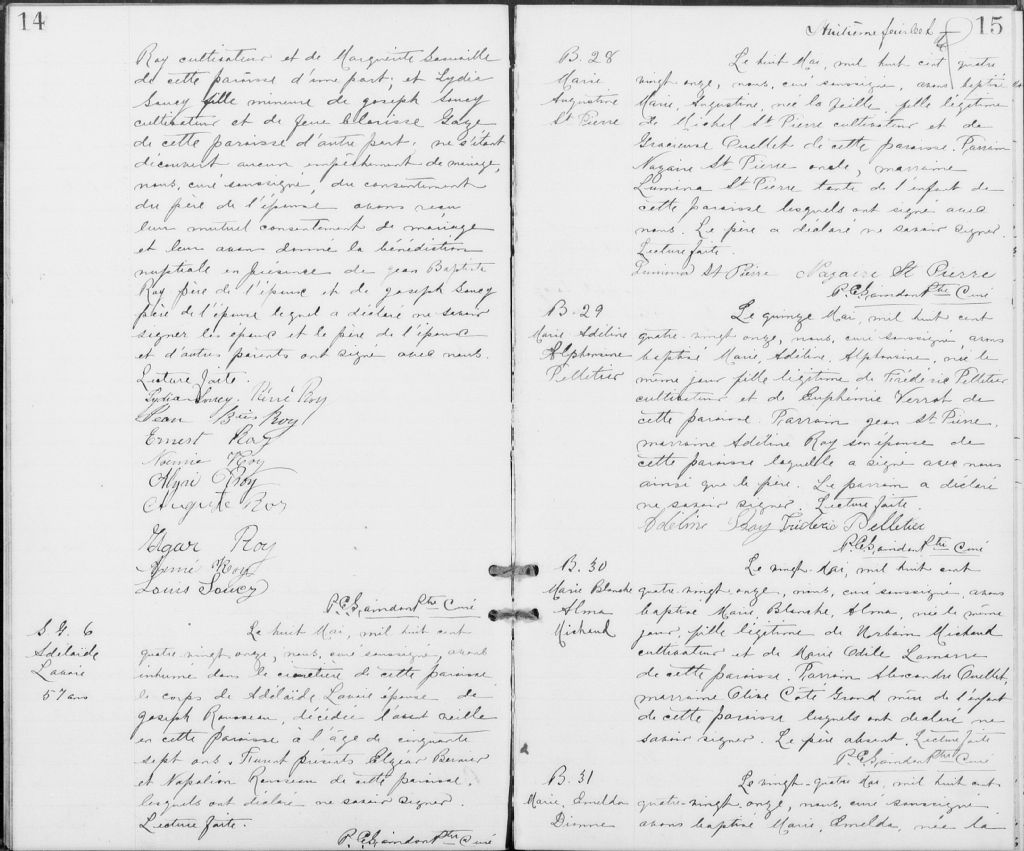 14
Roy cultivateur et de Marguerite
de cette paroisse d'une part; et Lydia
Soucy fille mineure de joseph Soucy
cultivateur et de feue Clarisse
de cette paroisse d'autre part; ne s'étant
découvert aucun empêchement de mariage,
nous, curé soussigné, du consentement
du père de l'épouse avons reçu
leur mutuel consentement de mariage
et leur avons donné la bénédiction
nuptiale en présence de jean Baptiste
Roy père de l'époux et de joseph Soucy
père de l'épouse lequel a déclaré ne savoir
signer les époux et le père de l'époux
et d'autres parents ont signé avec nous.
Lecture faite.
Lydia Soucy. Réné Roy
Jean Bte Roy
Ernest Roy
Noemie Roy
Roy
Auguste Roy
Edgar Roy
Roy
Louis Soucy
Ptre Curé
S. 6
Adelaide
Lavoie
57 ans
Le huit Mai, mil huit cent
quatre vingt onze, nous, curé soussigné, avons
inhumé dans le cimetière de cette paroisse
le corps de Adélaïde Lavoie épouse de
joseph Rousseau, décédée l'avant veille
en cette paroisse à l'âge de cinquante
sept ans. Furent présents Elzéar Bernier
et Napoléon Rousseau de cette paroisse,
lesquels ont déclaré ne savoir signer.
Lecture faite.
Ptre Curé
15
Huitième feuillet
B. 28
Marie
Augustine
St Pierre
Le huit Mai, mil huit cent quatre
vingt onze, nous, curé soussigné, avons baptisé
Marie, Augustine, née la veille, fille légitime
de Michel St Pierre cultivateur et de
Gracieuse Ouellet de cette paroisse. Parrain
Nazaire St Pierre oncle, marraine
Lumina St Pierre tante de l'enfant de
cette paroisse lesquels ont signé avec
nous. Le père a déclaré ne savoir signer.
Lecture faite.
Lumina St Pierre Nazaire St Pierre
Ptre Curé
B. 29
Marie Adéline
Alphonsine
Pelletier
Le quinze Mai, mil huit cent
quatre-vingt onze, nous, curé soussigné, avons
baptisé Marie, Adéline, Alphonsine, née le
même jour fille légitime de Frédéric Pelletier
cultivateur et de Euphémie Verrot de
cette paroisse. Parrain jean St Pierre,
marraine Adéline Roy son épouse de
cette paroisse laquelle a signé avec nous
ainsi que le père. Le parrain a déclaré
ne savoir signer. Lecture faite.
Adéline Roy Frédéric Pelletier
Ptre Curé
B. 30
Marie Blanche
Alma
Michaud
Le vingt Mai, mil huit cent
quatre vingt onze, nous, curé soussigné, avons
baptisé Marie Blanche, Alma, née le même
jour, fille légitime de Urbain Michaud
cultivateur et de Marie Odile Lamarre
de cette paroisse. Parrain Alexandre Ouellet,
marraine Olive Côté Grand mère de l'enfant
de cette paroisse lesquels ont déclaré ne
savoir signer. Le père absent. Lecture faite
Ptre Curé
B. 31
Marie, Emelda
Dionne
Le vingt-quatre Mai, mil huit cent
quatre-vingt onze, nous, curé soussigné
avons baptisé Marie, Emelda, née la